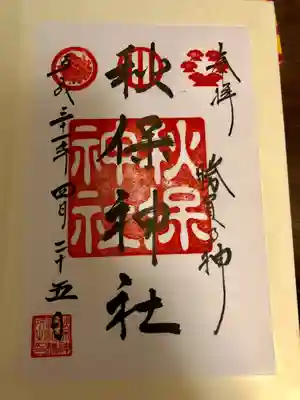 奉拝
勝負の神
秋保神社
秋保
神社
平成三十一年四月二十五